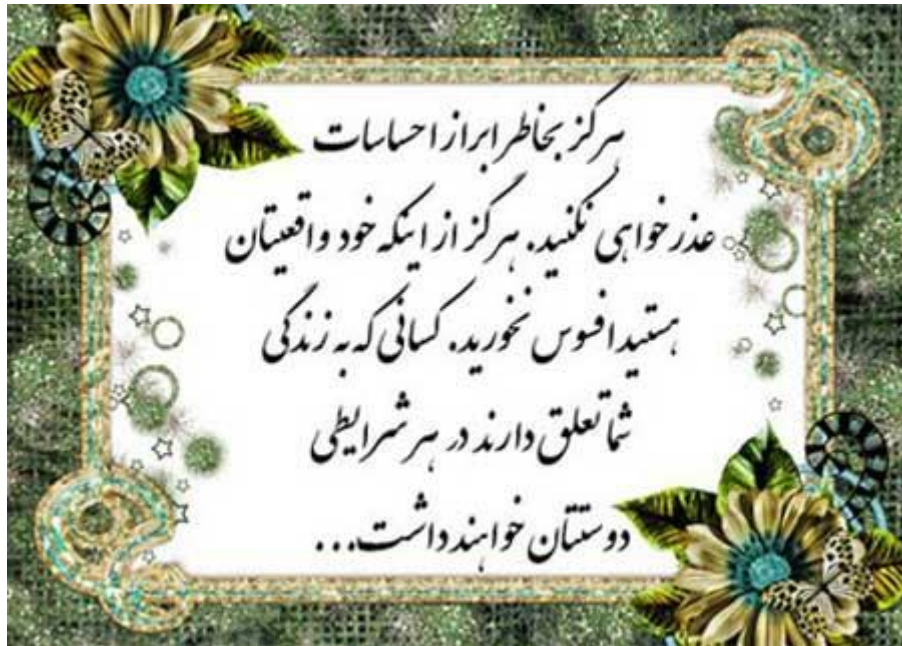 هرگز بخاطر ابراز احساسات
عذرخواهی نکنید. هرگز از اینکه خود واقعیتان
هستید افسوس نخورید. کسانی که به زندگی
شما تعلق دارند در هر شرایطی
دوستتان خواهند داشت...